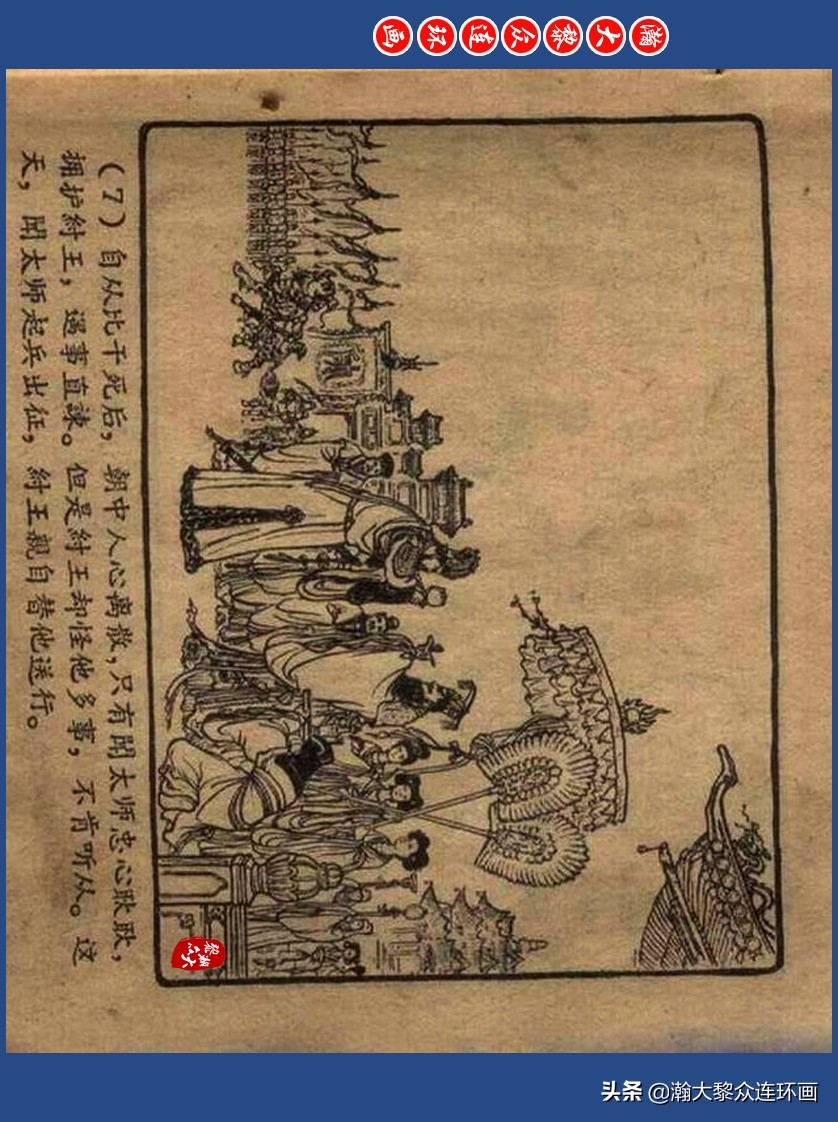 瀚大黎众连环画
(7)自从比干死后，朝中人心离散，只有闻太师忠心耿耿，
拥护紂王，遇事直諫。但是紂王却怪他多事，不肯听从。这
天，闻太师起兵出征，紂王親自替他送行。
瀚大黎众
头条 @瀚大黎众连环画